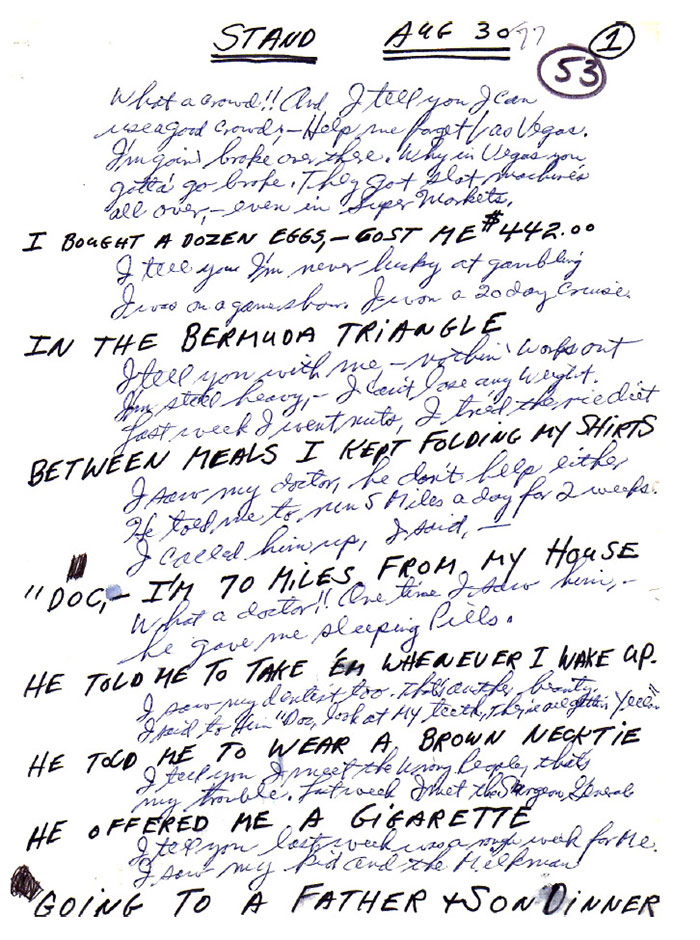 STAND AUG 30 77 1
53
What a crowd!! And I tell you I can
use a good crowd,– Help me forget Las Vegas.
I'm goin' broke over there. Why in Vegas you
gotta' go broke. They got slot machines
all over,– even in Super Markets.
I BOUGHT A DOZEN EGGS,– COST ME $442.00
I tell you I'm never lucky at gambling
I was on a game show. I won a 20 day cruise
IN THE BERMUDA TRIANGLE
I tell you with me,– nothin' works out
I'm still heavy,– I can't lose any weight.
Last week I went nuts, I tried the rice diet
BETWEEN MEALS I KEPT FOLDING MY SHIRTS
I saw my doctor, he don't help either
He told me to run 5 Miles a day for 2 weeks.
I called him up, I said,–
"DOC,– I'M 70 MILES FROM MY HOUSE
What a doctor!! One time I saw him,–
he gave me sleeping Pills.
HE TOLD ME TO TAKE 'EM WHENEVER I WAKE UP.
I saw my dentist too. That's another beauty.
I said to Him "Doc, look at MY teeth, They're all gettin' Yellow"
HE TOLD ME TO WEAR A BROWN NECKTIE
I tell you I meet the wrong People, thats
my trouble. Last week I met the Surgeon General
HE OFFERED ME A CIGARETTE
I tell you last week was a rough week for Me.
I saw my kid and the Milkman
GOING TO A FATHER + SON DINNER